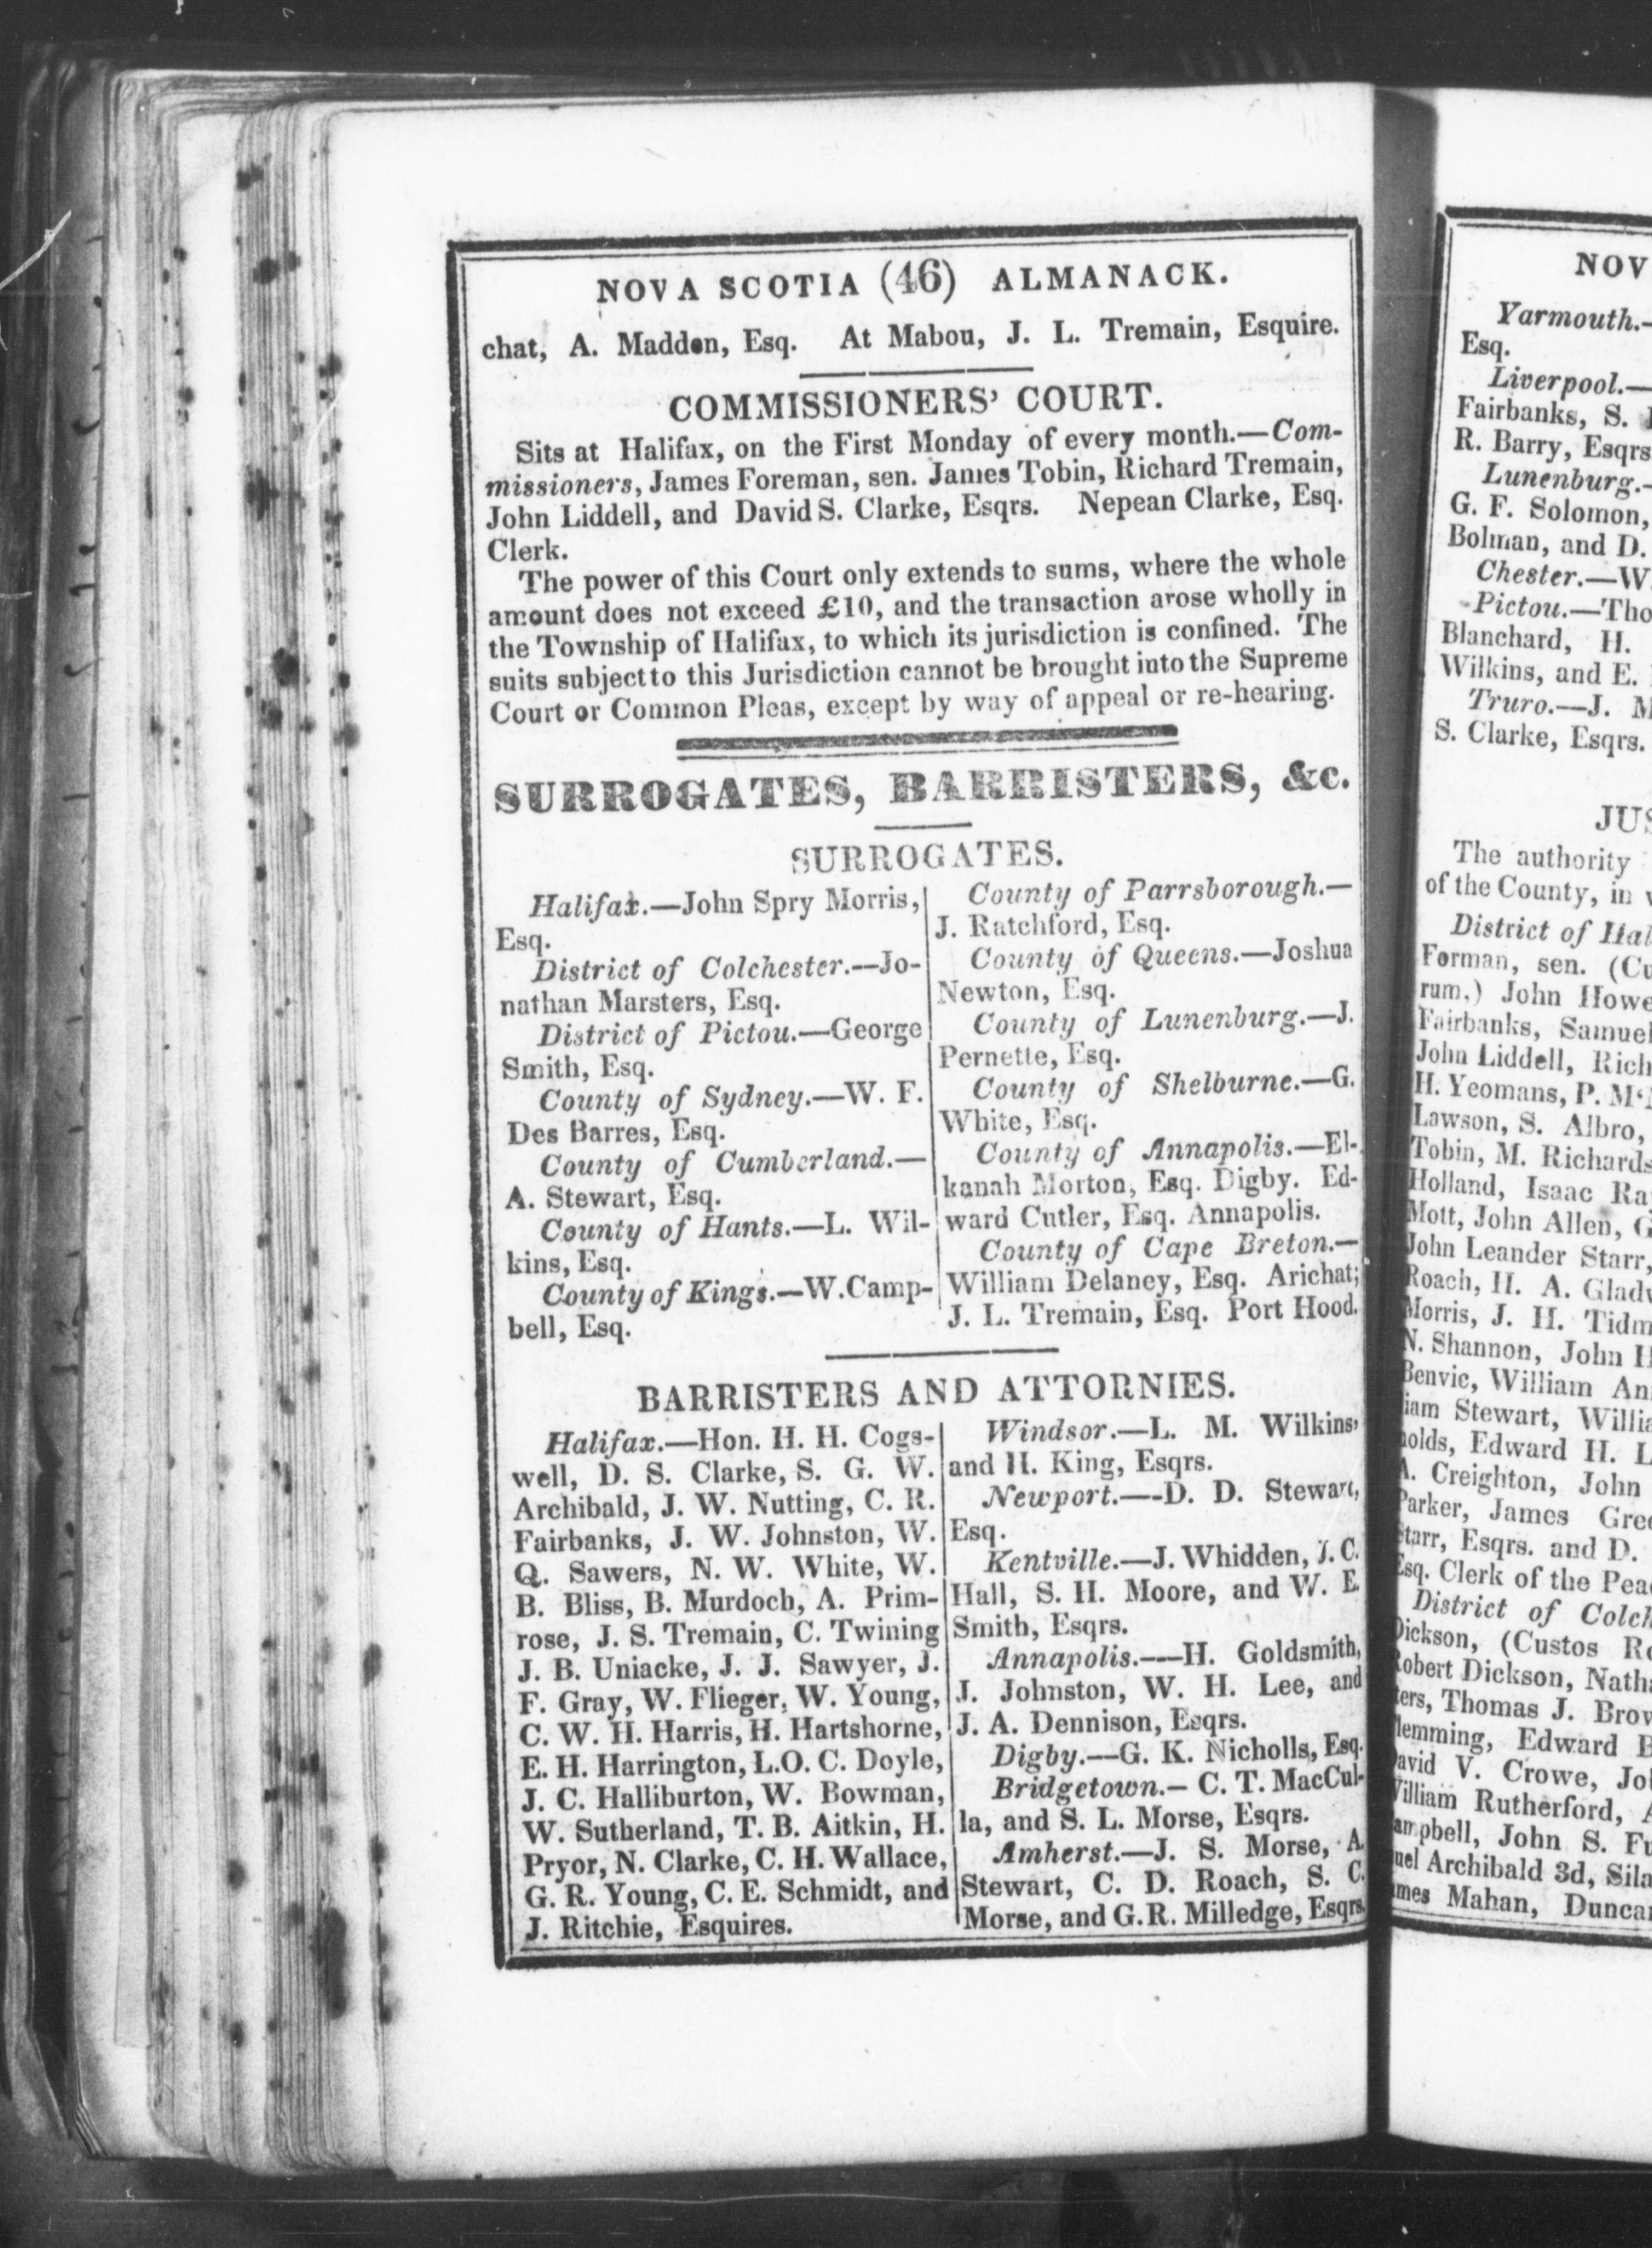 NOVA SCOTIA (46) ALMANACK.
chat, A. Madden, Esq. At Mabou, J. L. Tremain, Esquire.
COMMISSIONERS' COURT.
Sits at Halifax, on the First Monday of every month.—Com-
missioners, James Foreman, sen. James Tobin, Richard Tremain,
John Liddell, and David S. Clarke, Esqrs. Nepean Clarke, Esq.
Clerk.
The power of this Court only extends to sums, where the whole
amount does not exceed £10, and the transaction arose wholly in
the Township of Halifax, to which its jurisdiction is confined. The
suits subject to this Jurisdiction cannot be brought into the Supreme
Court or Common Pleas, except by way of appeal or re-hearing.
SURROGATES, BARRISTERS, &c.
SURROGATES.
Halifax.—John Spry Morris,
Esq.
District of Colchester.—Jo-
nathan Marsters, Esq.
District of Pictou.—George
Smith, Esq.
County of Sydney.—W. F.
Des Barres, Esq.
County of Cumberland.—
A. Stewart, Esq.
County of Hants.—L. Wil-
kins, Esq.
County of Kings.—W. Camp-
bell, Esq.
County of Parrsborough.—
J. Ratchford, Esq.
County of Queens.—Joshua
Newton, Esq.
County of Lunenburg.—J.
Pernette, Esq.
County of Shelburne.—G.
White, Esq.
County of Annapolis.—El-
kanah Morton, Esq. Digby. Ed-
ward Cutler, Esq. Annapolis.
County of Cape Breton.—
William Delaney, Esq. Arichat;
J. L. Tremain, Esq. Port Hood.
BARRISTERS AND ATTORNIES.
Halifax.—Hon. H. H. Cogs-
well, D. S. Clarke, S. G. W.
Archibald, J. W. Nutting, C. R.
Fairbanks, J. W. Johnston, W.
Q. Sawers, N. W. White, W.
B. Bliss, B. Murdoch, A. Prim-
rose, J. S. Tremain, C. Twining
J. B. Uniacke, J. J. Sawyer, J.
F. Gray, W. Flieger, W. Young,
C. W. H. Harris, H. Hartshorne,
E. H. Harrington, L.O. C. Doyle,
J. C. Halliburton, W. Bowman,
W. Sutherland, T. B. Aitkin, H.
Pryor, N. Clarke, C. H. Wallace,
G. R. Young, C. E. Schmidt, and
J. Ritchie, Esquires.
Windsor.—L. M. Wilkins,
and H. King, Esqrs.
Newport.—D. D. Stewart,
Esq.
Kentville.—J. Whidden, J. C.
Hall, S. H. Moore, and W. E.
Smith, Esqrs.
Annapolis.—H. Goldsmith,
J. Johnston, W. H. Lee, and
J. A. Dennison, Esqrs.
Digby.—G. K. Nicholls, Esq.
Bridgetown.—C. T. MacCul-
la, and S. L. Morse, Esqrs.
Amherst.—J. S. Morse, A.
Stewart, C. D. Roach, S. C.
Morse, and G.R. Milledge, Esqrs.
NOV
Yarmouth.—
Esq.
Liverpool.—
Fairbanks, S.
R. Barry, Esqrs
Lunenburg.—
G. F. Solomon,
Bolman, and D.
Chester.—W.
Pictou.—Tho
Blanchard, H.
Wilkins, and E.
Truro.—J.
S. Clarke, Esqrs.
JUS
The authority
of the County, in
District of Hal
Forman, sen. (Cu
rum.) John Howe
Fairbanks, Samuel
John Liddell, Rich
H. Yeomans, P.
Lawson, S. Albro,
Tobin, M. Richards
Holland, Isaac
Mott, John Allen, G
John Leander Starr,
Roach, H. A. Gladw
Morris, J. H. Tidm
N. Shannon, John H
Benvie, William An
iam Stewart, Willia
nolds, Edward H. L
A. Creighton, John
Parker, James Gree
Starr, Esqrs. and D.
Esq. Clerk of the Pea
District of Colch
Dickson, (Custos Ro
Robert Dickson, Natha
ters, Thomas J. Brow
lemming, Edward B
avid V. Crowe, Jo
William Rutherford, A
ampbell, John S. Fu
uel Archibald 3d, Sila
ames Mahan, Duncan